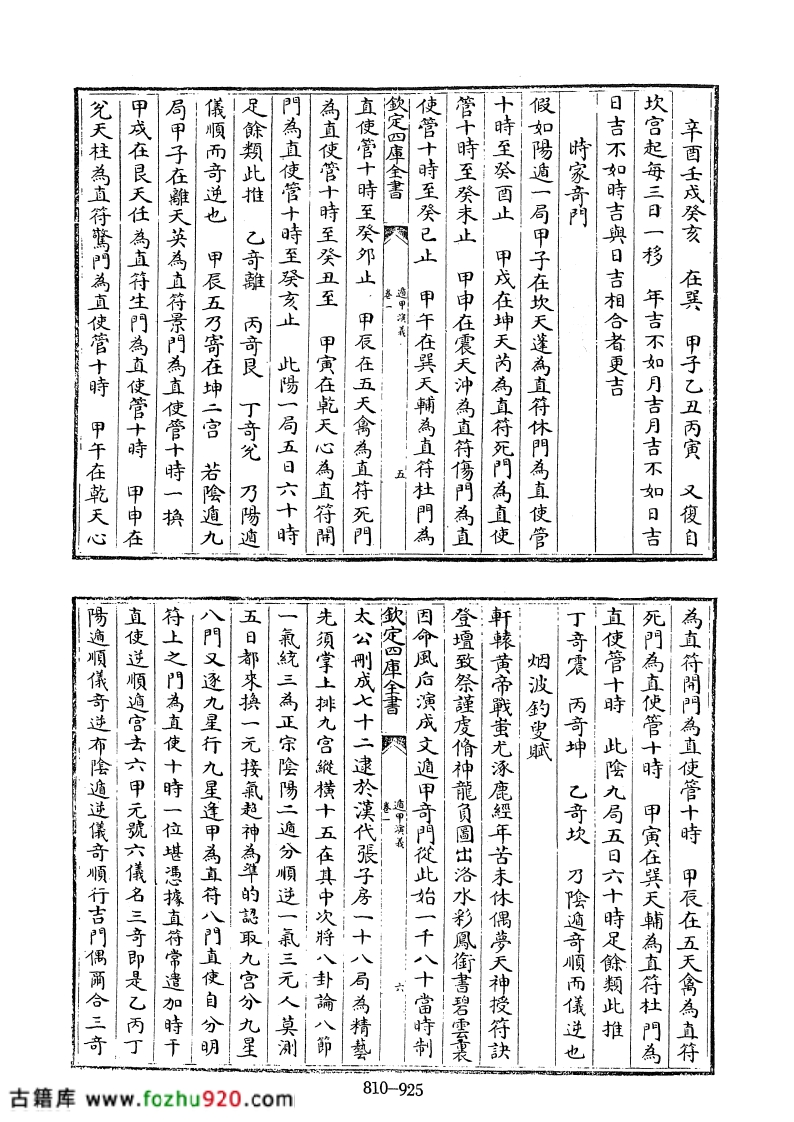 辛酉壬戌癸亥　在巽　甲子乙丑丙寅　又復自
坎宫起每三日一移　年吉不如月吉月吉不如日吉
日吉不如時吉與日吉相合者更吉
時家奇門
假如陽遁一局甲子在坎天蓬為直符休門為直使管
十時至癸酉止　甲戌在坤天芮為直符死門為直使
管十時至癸未止　甲申在震天沖為直符傷門為直
使管十時至癸巳止　甲午在巽天輔為直符杜門為
欽定四庫全書
遁甲演義
卷一
五
直使管十時至癸夘止　甲辰在五天禽為直符死門
為直使管十時至癸丑至　甲寅在乾天心為直符開
門為直使管十時至癸亥止　此陽一局五日六十時
足餘類此推　乙奇離　丙奇艮　丁奇兌　乃陽遁
儀順而奇逆也　甲辰五乃寄在坤二宫　若陰遁九
局甲子在離天英為直符景門為直使管十時一換
甲戌在艮天任為直符生門為直使管十時　甲申在
兌天柱為直符驚門為直使管十時　甲午在乾天心
為直符開門為直使管十時　甲辰在五天禽為直符
死門為直使管十時　甲寅在巽天輔為直符杜門為
直使管十時　此陰九局五日六十時足餘類此推
丁奇震　丙奇坤　乙奇坎　乃陰遁奇順而儀逆也
烟波釣叟賦
軒轅黄帝戰蚩尤涿鹿經年苦未休偶夢天神授符訣
登壇致祭謹虔脩神龍負圖出洛水彩鳳銜書碧雲裏
因命風后演成文遁甲奇門從此始一千八十當時制
欽定四庫全書
遁甲演義
卷一
六
太公刪成七十二逮於漢代張子房一十八局為精藝
先須掌上排九宫縱横十五在其中次將八卦論八節
一氣統三為正宗陰陽二遁分順逆一氣三元人莫測
五日都來換一元接氣超神為凖的認取九宫分九星
八門又逐九星行九星逢甲為直符八門直使自分明
符上之門為直使十時一位堪憑據直符常遣加時干
直使逆順遁宫去六甲元號六儀名三奇即是乙丙丁
陽遁順儀奇逆布陰遁逆儀奇順行吉門偶爾合三奇
810—925
古籍库 www.fozhu920.com